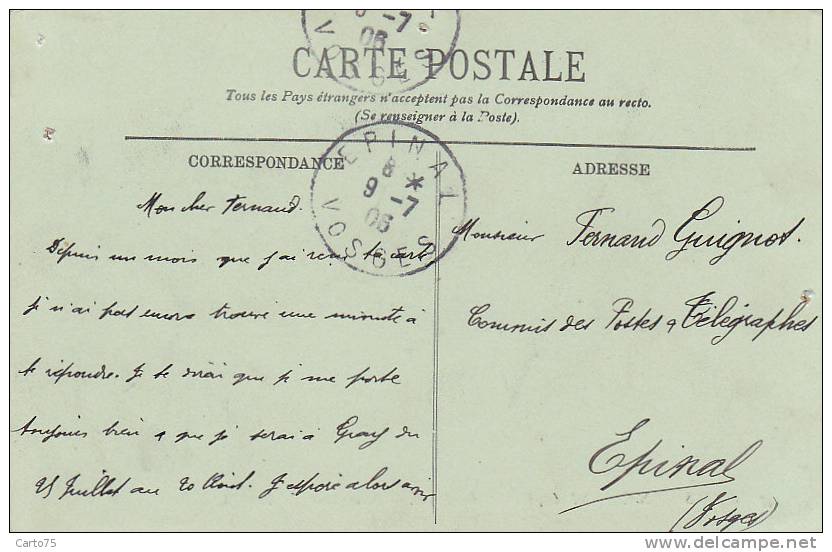 8 -7
06
VOSGES
CARTE POSTALE
Tous les Pays étrangers n'acceptent pas la Correspondance au recto.
(Se renseigner à la Poste).
EPINAL
8 *
9 -7
06
VOSGES
CORRESPONDANCE
Mon cher Fernand.
Depuis un mois que j'ai reçu ta carte
je n'ai pas encore trouvé une minute à
te répondre. Je te dirai que je me porte
toujours bien & que je serai à Gray du
25 Juillet au 20 Août. J'espère alors avoir
ADRESSE
Monsieur Fernand Guignot.
Commis des Postes & Télégraphes
Epinal
(Vosges)
Carto75
www.delcampe.net